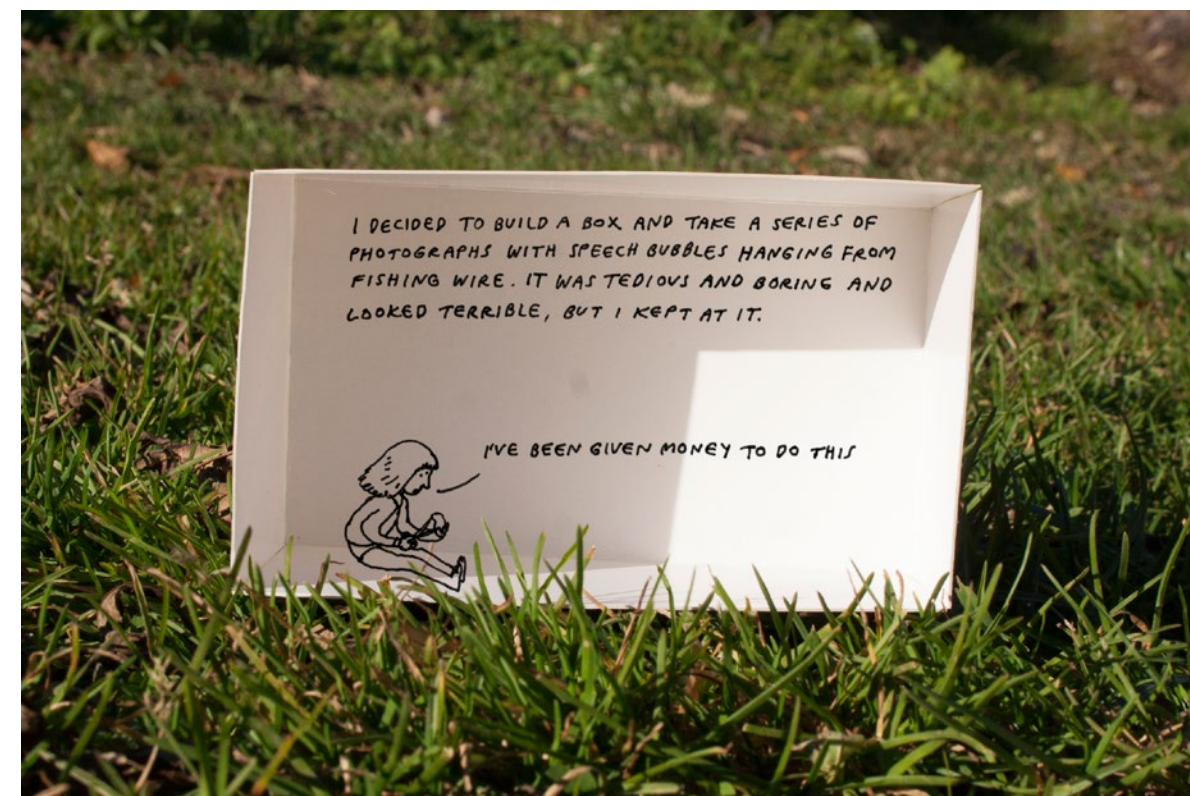 I DECIDED TO BUILD A BOX AND TAKE A SERIES OF
PHOTOGRAPHS WITH SPEECH BUBBLES HANGING FROM
FISHING WIRE. IT WAS TEDIOUS AND BORING AND
LOOKED TERRIBLE, BUT I KEPT AT IT.
I'VE BEEN GIVEN MONEY TO DO THIS